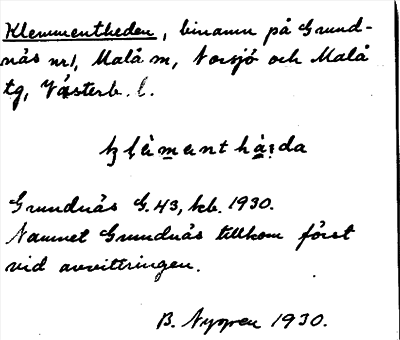 Klemmentheden, binamn på Grund-
näs nr 1, Malå sn, Norsjö och Malå
tg, Västerb. l.
Grundnäs G. 43, kb. 1930.
Namnet Grundnäs tillkom först
vid avvittringen.
B. Nygren 1930.